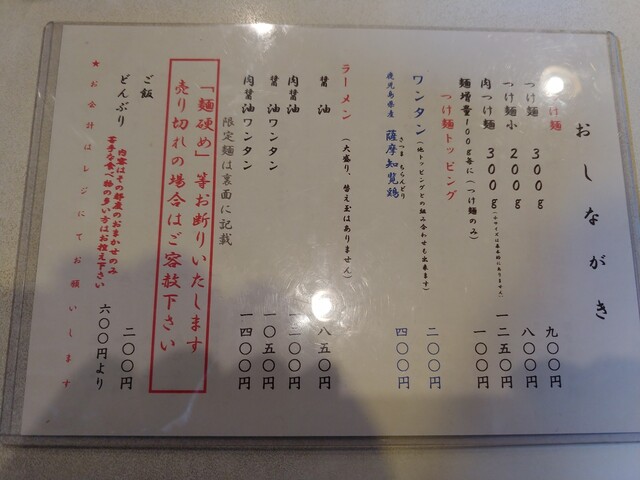 おしながき
つけ麺
つけ麺 300g 九〇〇円
つけ麺小 200g 八〇〇円
肉つけ麺 300g 一二五〇円
麺増量100g毎に(つけ麺のみ) 一〇〇円
つけ麺トッピング
ワンタン(他トッピングとの組み合わせも出来ます) 二〇〇円
鹿児島県産 薩摩知覧鶏 四〇〇円
ラーメン (大盛り、替え玉はありません)
醤油 八五〇円
肉醤油 一二〇〇円
醤油ワンタン 一〇五〇円
肉醤油ワンタン 一四〇〇円
限定麺は裏面に記載
「麺硬め」等お断りいたします
売り切れの場合はご容赦下さい
ご飯 二〇〇円
どんぶり 六〇〇円より
内容はその都度のおまかせのみ
苦手な食べ物の多い方はお控え下さい
★お会計はレジにてお願いします